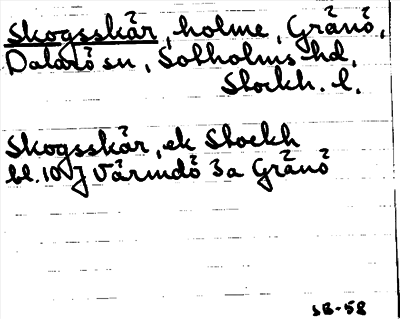 Skogsskär, holme, Gränö,
Dalarö sn, Sotholms hd,
Stockh. l.
Skogsskär, ek Stockh
bl. 10 J Värmdö 3a Gränö
SB-58